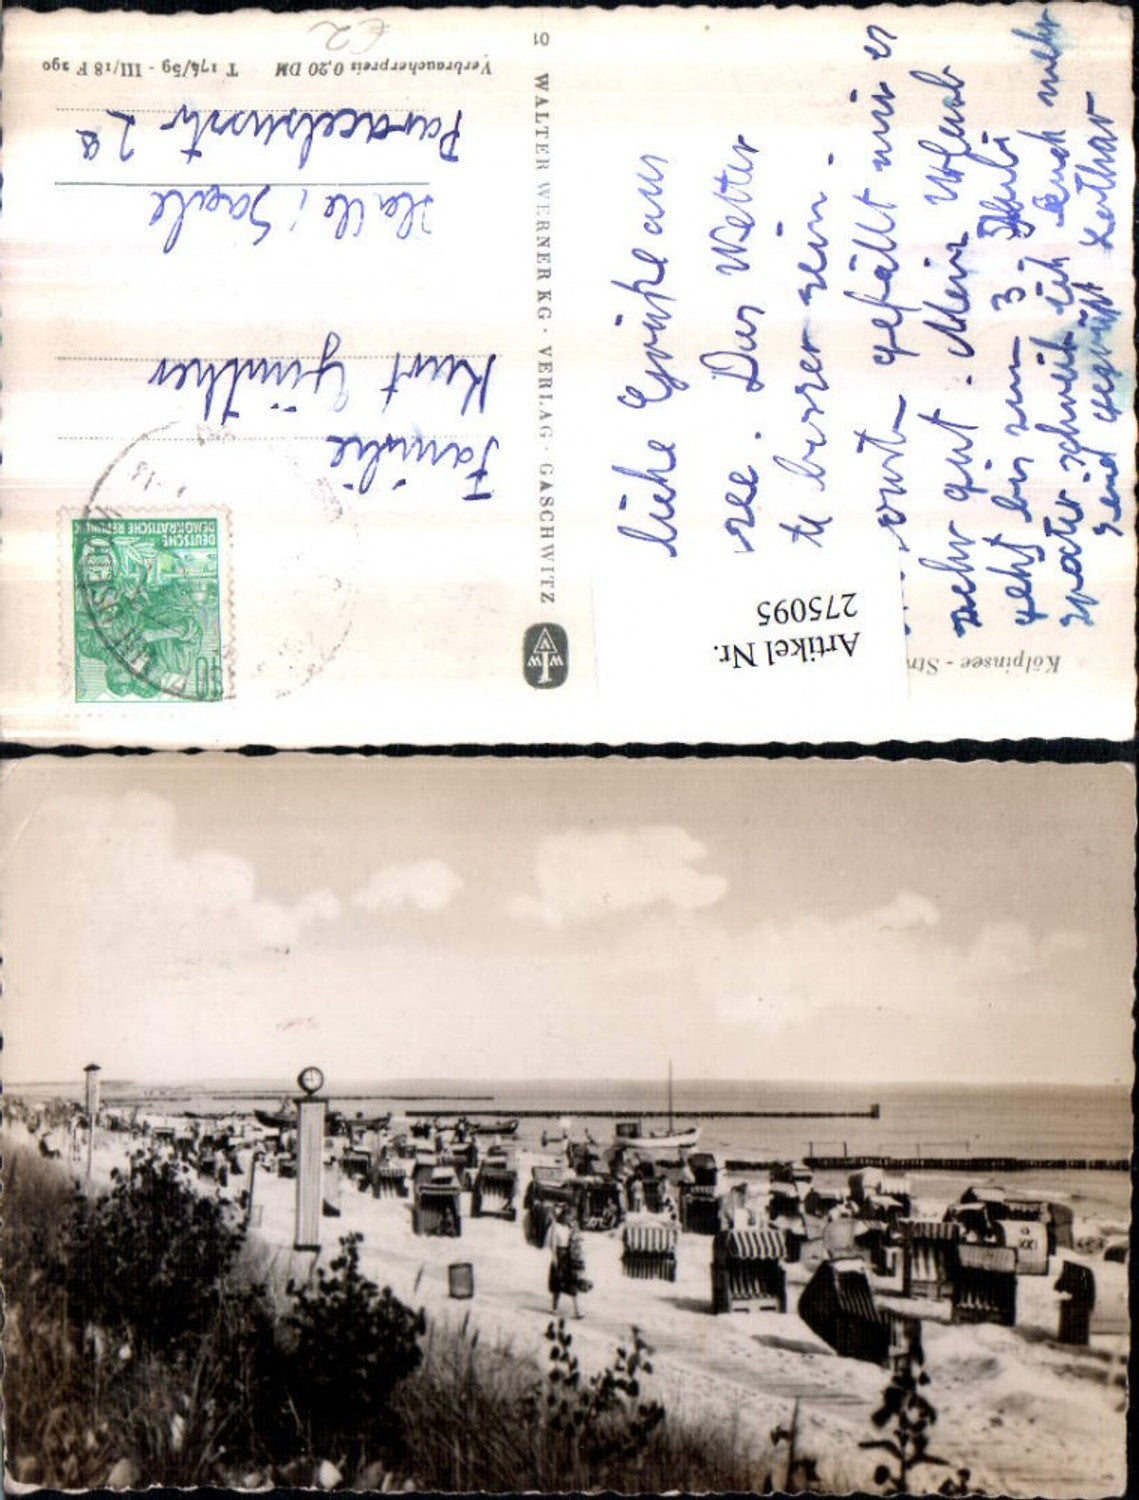 Kölpinsee - Str
Artikel Nr.
275095
liebe Grüße aus
see. Das Wetter
te besser sein.
gefällt mir es
sehr gut. Mein Urlaub
geht bis zum 3. Juli
später schreib ich Euch mehr
Seid gegrüßt Lothar
WALTER WERNER KG · VERLAG · GASCHWITZ
01
DEUTSCHE
DEMOKRATISCHE REPUBLIK
10
Familie
Kurt Günther
Halle / Saale
Paracelsusstr 2a
Verbraucherpreis 0,20 DM T 174/59 - III/18 F 290
€2